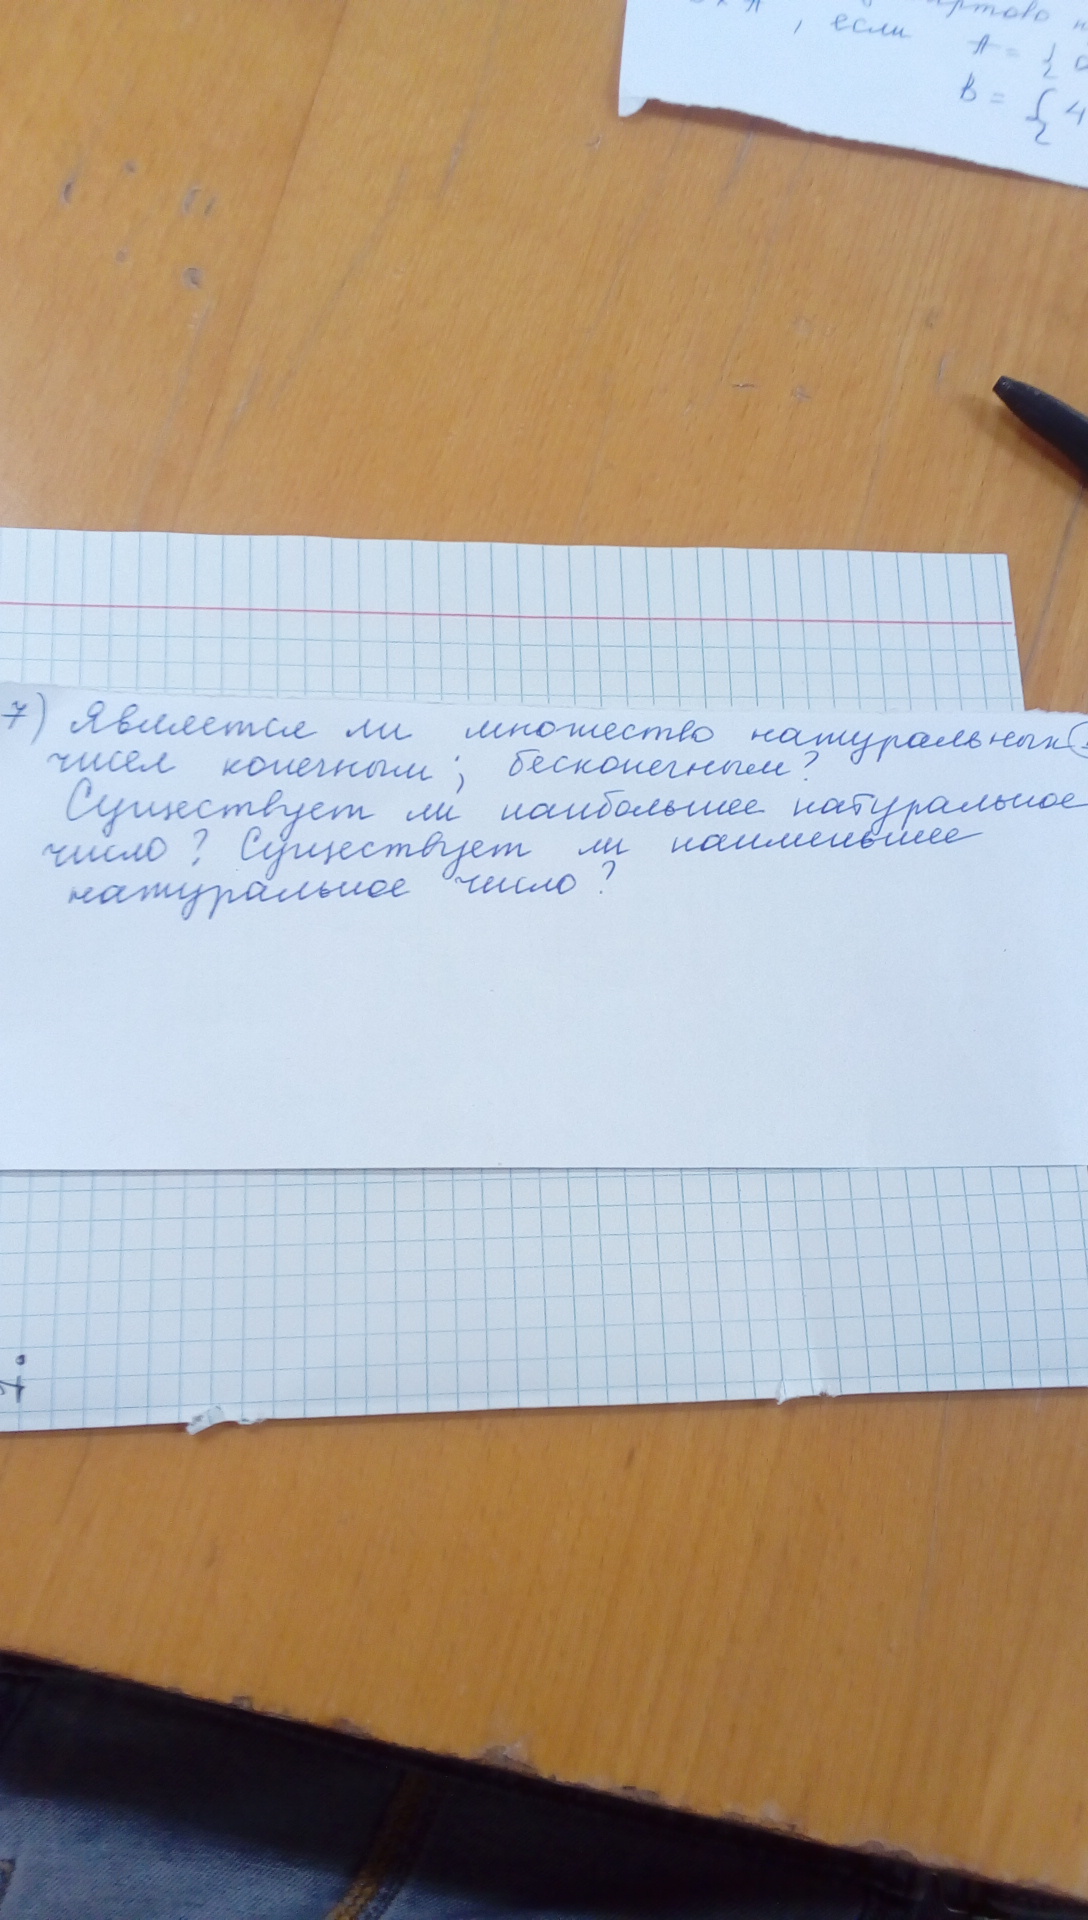 , если A = {
B = { 4
7) Является ли множество натуральных
чисел конечным; бесконечным?
Существует ли наибольшее натуральное
число? Существует ли наименьшее
натуральное число?